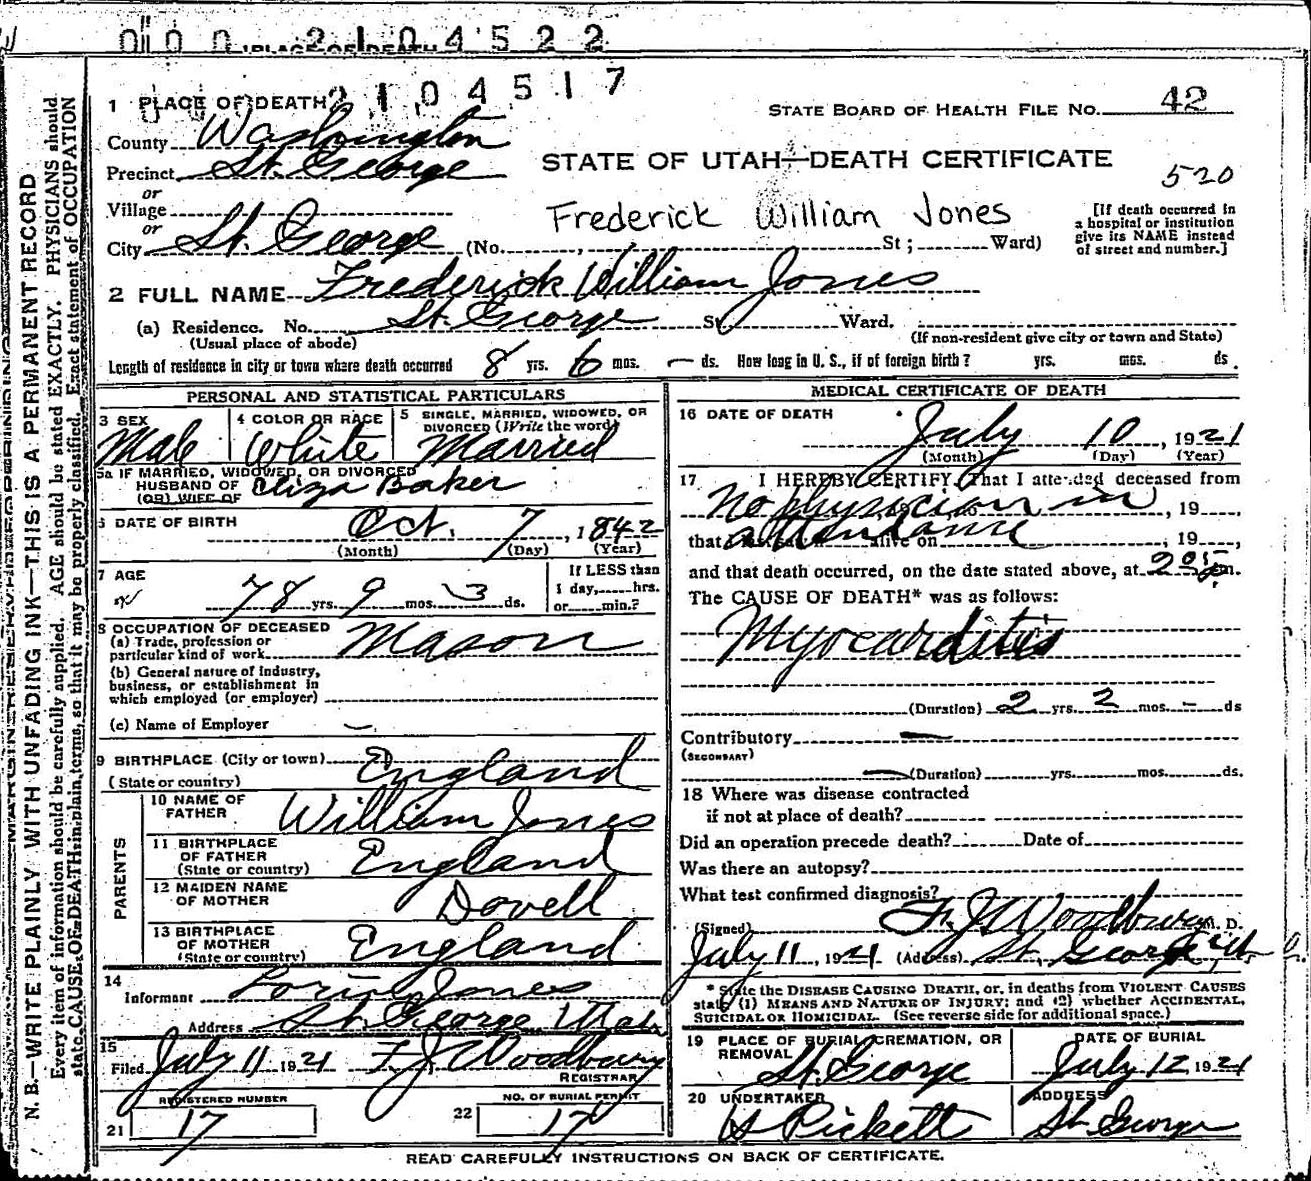 2104522
2104517
1 PLACE OF DEATH
STATE BOARD OF HEALTH FILE NO. 42
County Washington
Precinct St. George
STATE OF UTAH—DEATH CERTIFICATE
520
or
Village
or
Frederick William Jones
[If death occurred in a hospital or institution give its NAME instead of street and number.]
City St. George (No. St; Ward)
2 FULL NAME Frederick William Jones
(a) Residence. No. St. George St. Ward.
(Usual place of abode) (If non-resident give city or town and State)
Length of residence in city or town where death occurred 8 yrs. 6 mos. — ds. How long in U. S., if of foreign birth? yrs. mos. ds.
PERSONAL AND STATISTICAL PARTICULARS
3 SEX Male
4 COLOR OR RACE White
5 SINGLE, MARRIED, WIDOWED, OR DIVORCED (Write the word) Married
5a IF MARRIED, WIDOWED, OR DIVORCED
HUSBAND OF Eliza Baker
(OR) WIFE OF
6 DATE OF BIRTH Oct. 7, 1842
(Month) (Day) (Year)
7 AGE 78 yrs. 9 mos. 3 ds.
If LESS than 1 day, hrs. or min.?
8 OCCUPATION OF DECEASED
(a) Trade, profession or particular kind of work Mason
(b) General nature of industry, business, or establishment in which employed (or employer)
(c) Name of Employer —
9 BIRTHPLACE (City or town) England
(State or country)
PARENTS
10 NAME OF FATHER William Jones
11 BIRTHPLACE OF FATHER England
(State or country)
12 MAIDEN NAME OF MOTHER Dovell
13 BIRTHPLACE OF MOTHER England
(State or country)
14
Informant Jones
Address St. George Utah
15
Filed July 11 1921 F. J. Woodbury
REGISTRAR
REGISTERED NUMBER
21 17
NO. OF BURIAL PERMIT
22 17
MEDICAL CERTIFICATE OF DEATH
16 DATE OF DEATH July 10, 1921
(Month) (Day) (Year)
17 I HEREBY CERTIFY That I attended deceased from
No physician in , 19
that attendance alive on , 19
and that death occurred, on the date stated above, at 2 05 m.
The CAUSE OF DEATH* was as follows:
Myocarditis
(Duration) 2 yrs. 2 mos. - ds
Contributory —
(SECONDARY)
— (Duration) yrs. mos. ds.
18 Where was disease contracted
if not at place of death?
Did an operation precede death? Date of
Was there an autopsy?
What test confirmed diagnosis?
(Signed) F. J. Woodbury M. D.
July 11, 1921 (Address) St. George, Ut
* State the DISEASE CAUSING DEATH, or, in deaths from VIOLENT CAUSES
state (1) MEANS AND NATURE OF INJURY; and (2) whether ACCIDENTAL,
SUICIDAL or HOMICIDAL. (See reverse side for additional space.)
19 PLACE OF BURIAL, CREMATION, OR REMOVAL St. George
DATE OF BURIAL July 12 1921
20 UNDERTAKER Pickett
ADDRESS St. George
READ CAREFULLY INSTRUCTIONS ON BACK OF CERTIFICATE.
N. B.—WRITE PLAINLY WITH UNFADING INK—THIS IS A PERMANENT RECORD
Every item of information should be carefully supplied. AGE should be stated EXACTLY. PHYSICIANS should
state CAUSE OF DEATH in plain terms, so that it may be properly classified. Exact statement of OCCUPATION